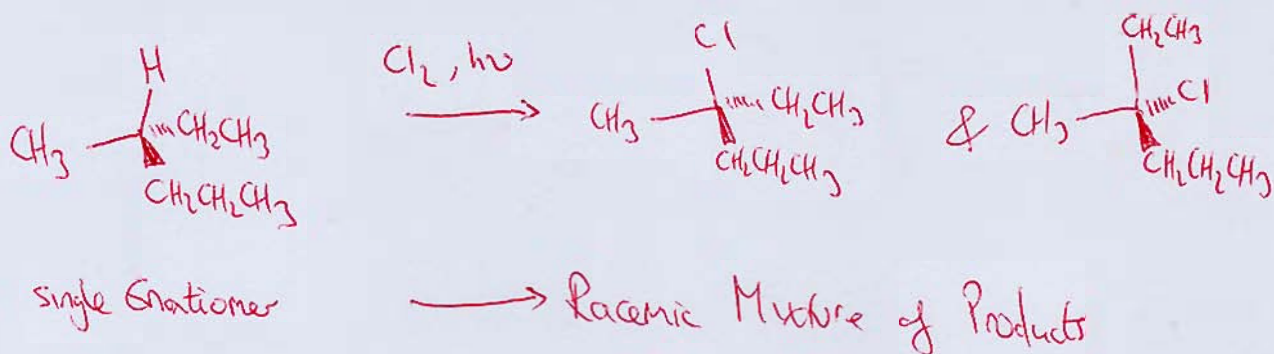 H
CH3 CH2CH3
CH2CH2CH3
Cl2, hν
Cl
CH3 CH2CH3
CH2CH2CH3
& CH3 CH2CH3
Cl
CH2CH2CH3
single Enationer → Racemic Mixture of Products